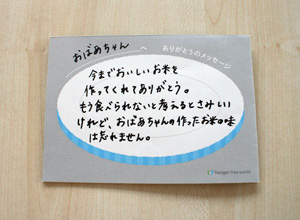 おばあちゃん へ ありがとうのメッセージ
今までおいしいお米を
作ってくれてありがとう。
もう食べられないと考えるとさみしい
けれど、おばあちゃんの作ったお米の味
は忘れません。
hunger free world